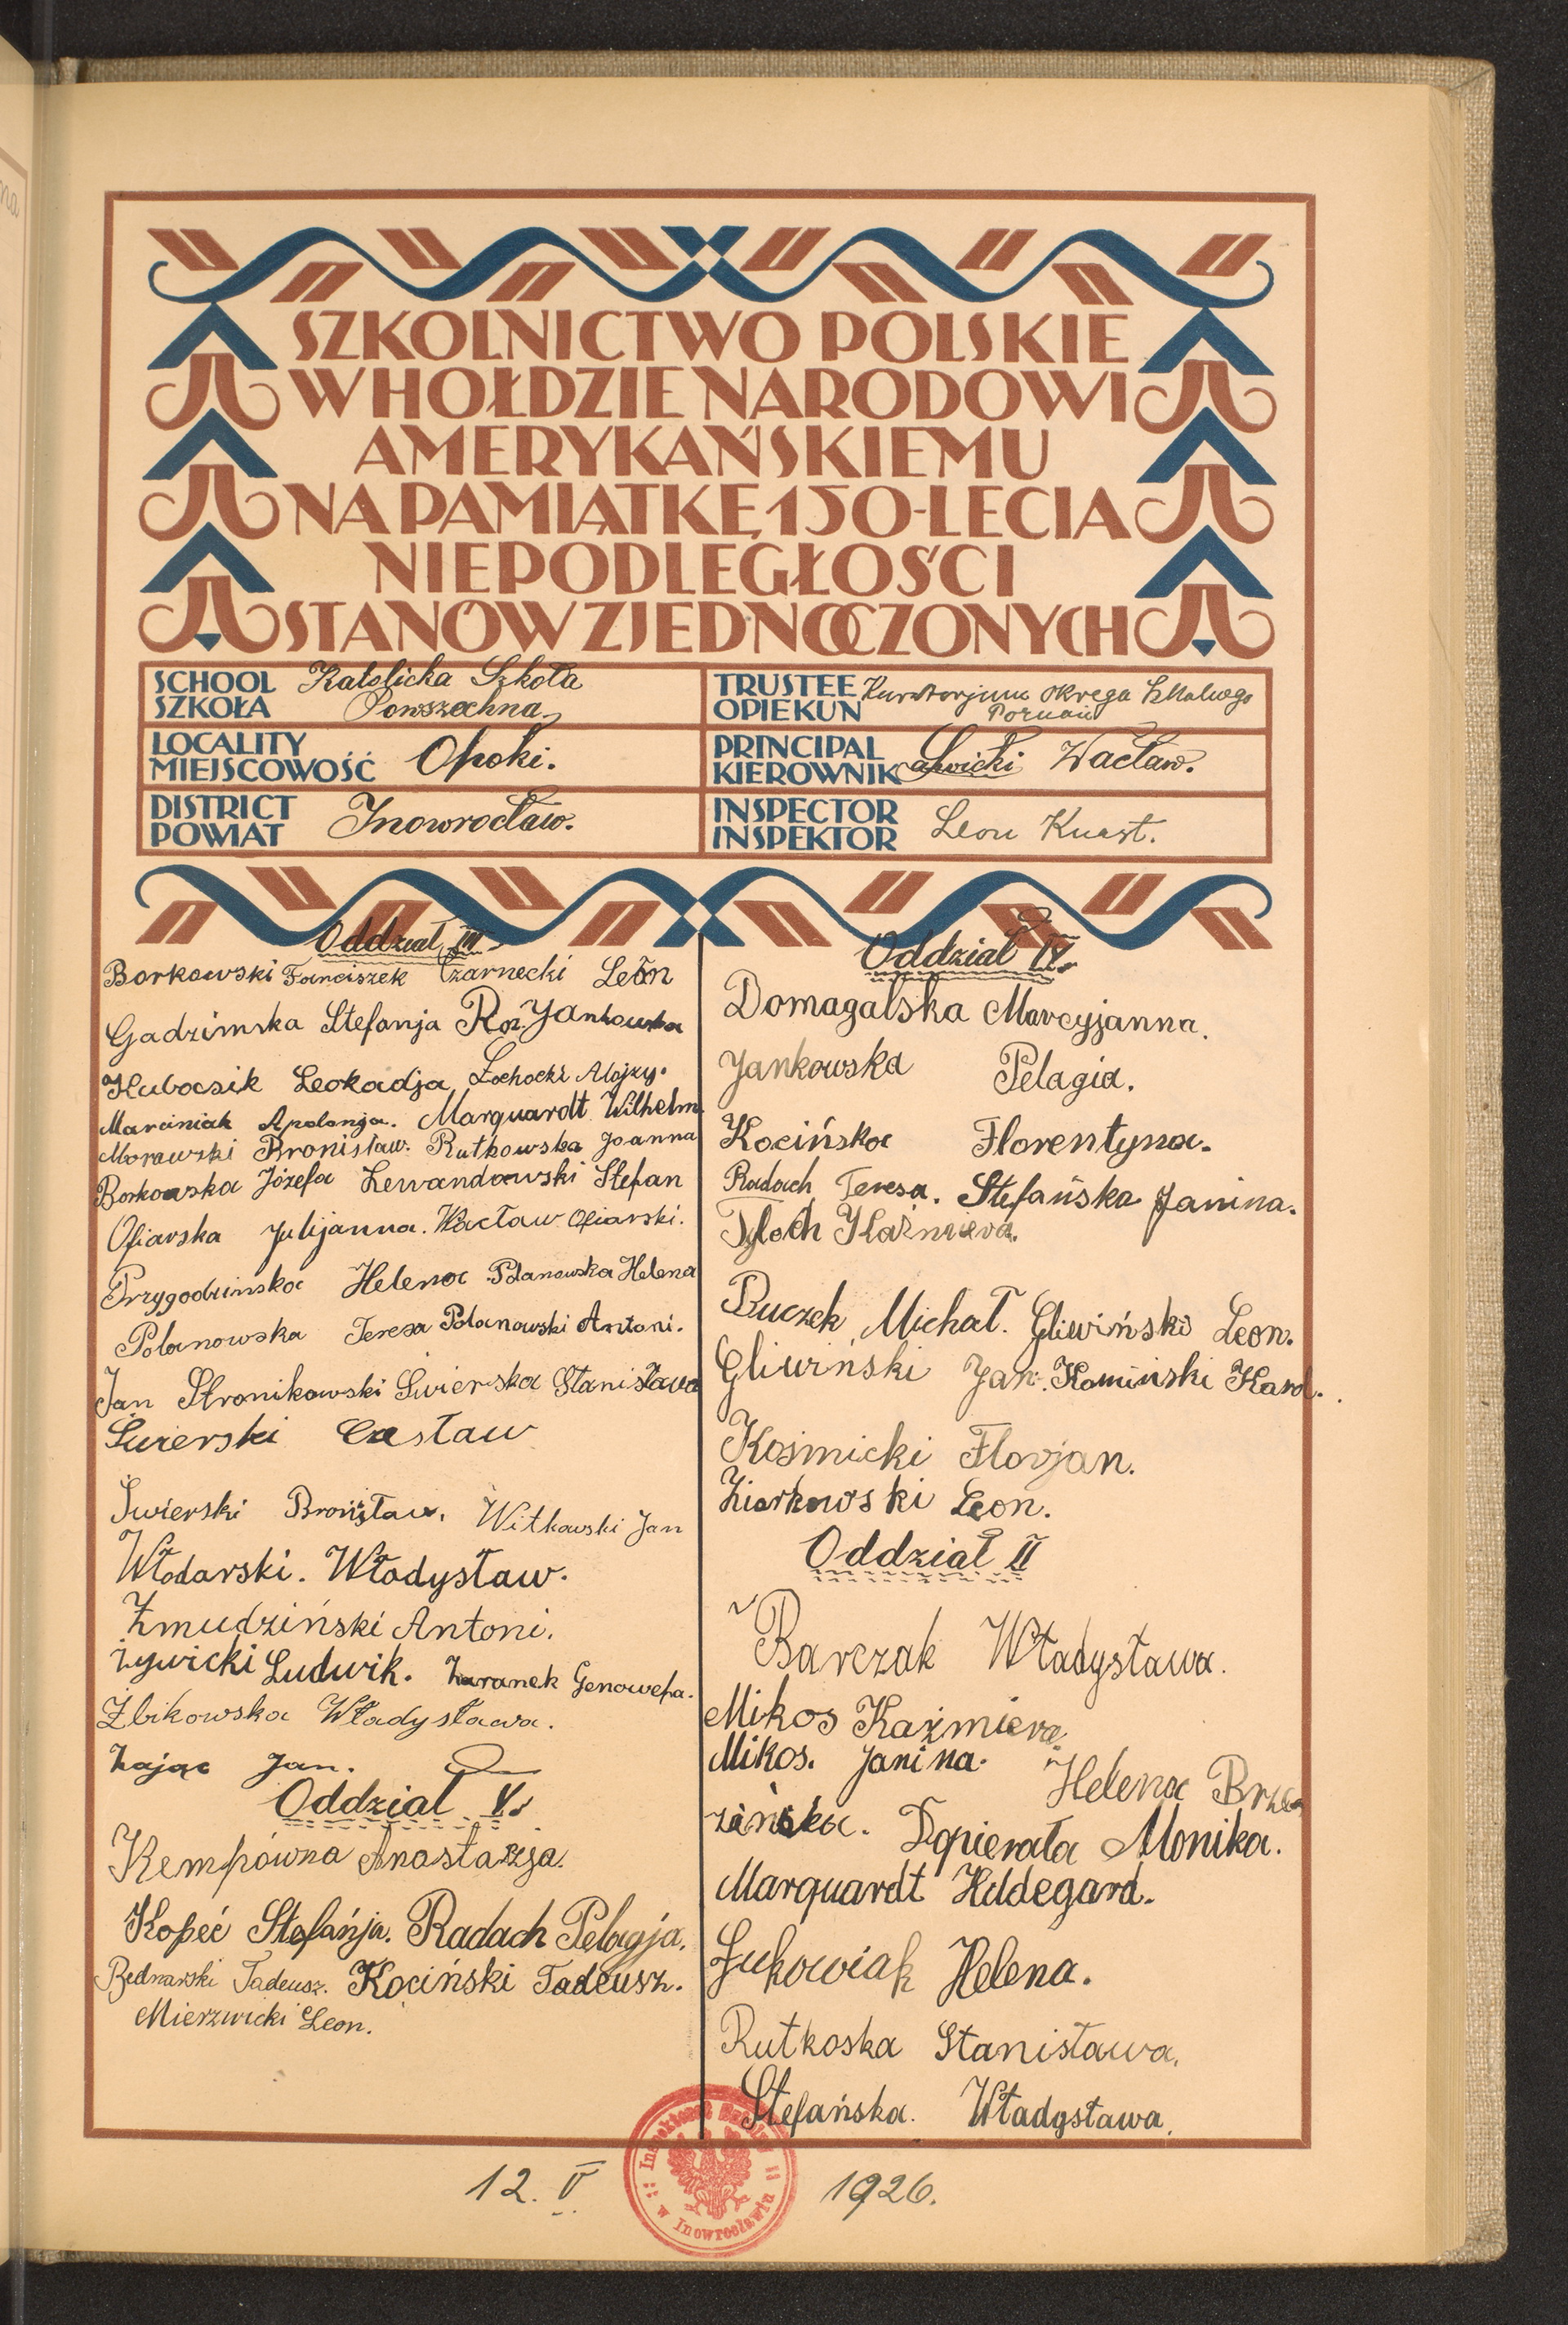 SZKOLNICTWO POLSKIE
W HOŁDZIE NARODOWI
AMERYKAŃSKIEMU
NA PAMIĄTKĘ 150-LECIA
NIEPODLEGŁOŚCI
STANÓW ZJEDNOCZONYCH
SCHOOL
SZKOŁA
Katolicka Szkoła
Powszechna
TRUSTEE
OPIEKUN
Kuratorjum Okręgu Szkolnego
Poznań
LOCALITY
MIEJSCOWOŚĆ
Opoki.
PRINCIPAL
KIEROWNIK
Wacław.
DISTRICT
POWIAT
Inowrocław.
INSPECTOR
INSPEKTOR
Leon Knast.
Oddział III
Borkowski Franciszek Czarnecki Leon
Gadzimska Stefanja Roz. Jankowska
Hubacsik Leokadja Łochocki Alojzy.
Marciniak Apolonja. Marquardt Wilhelm
Morawski Bronisław. Rutkowska Joanna
Borkowska Józefa Lewandowski Stefan
Ofiarska Julijanna. Wacław Ofiarski.
Przygodzinska Helena Polanowska Helena
Polanowska Teresa Polanowski Antoni.
Jan Stronikowski Świerska Stanisława
Świerski Czesław
Świerski Bronisław. Witkowski Jan
Włodarski. Władysław.
Żmudziński Antoni.
Żywicki Ludwik. Zaranek Genowefa.
Żbikowska Władysława.
Zając Jan.
Oddział V.
Kempówna Anastazja.
Kopeć Stefańja. Radach Pelagja.
Bednarski Tadeusz. Kociński Tadeusz.
Mierzwicki Leon.
Oddział IV.
Domagalska Marcyjanna.
Jankowska Pelagia.
Kocińska Florentyna.
Radach Teresa. Stefańska Janina.
Tyloch Kaźmiera.
Buczek Michał. Gliwiński Leon.
Gliwiński Jan. Kamiński Karol.
Kośmicki Florjan.
Ziarkowski Leon.
Oddział II
Barczak Władysława.
Mikos Kaźmiera
Mikos. Janina.
Helena Brze
zińska. Dopierała Monika.
Marquardt Hildegard.
Łukowiak Helena.
Rutkoska Stanisława.
Stefańska. Władysława.
Inspektorat Szkolny
w Inowrocławiu
12. V 1926.